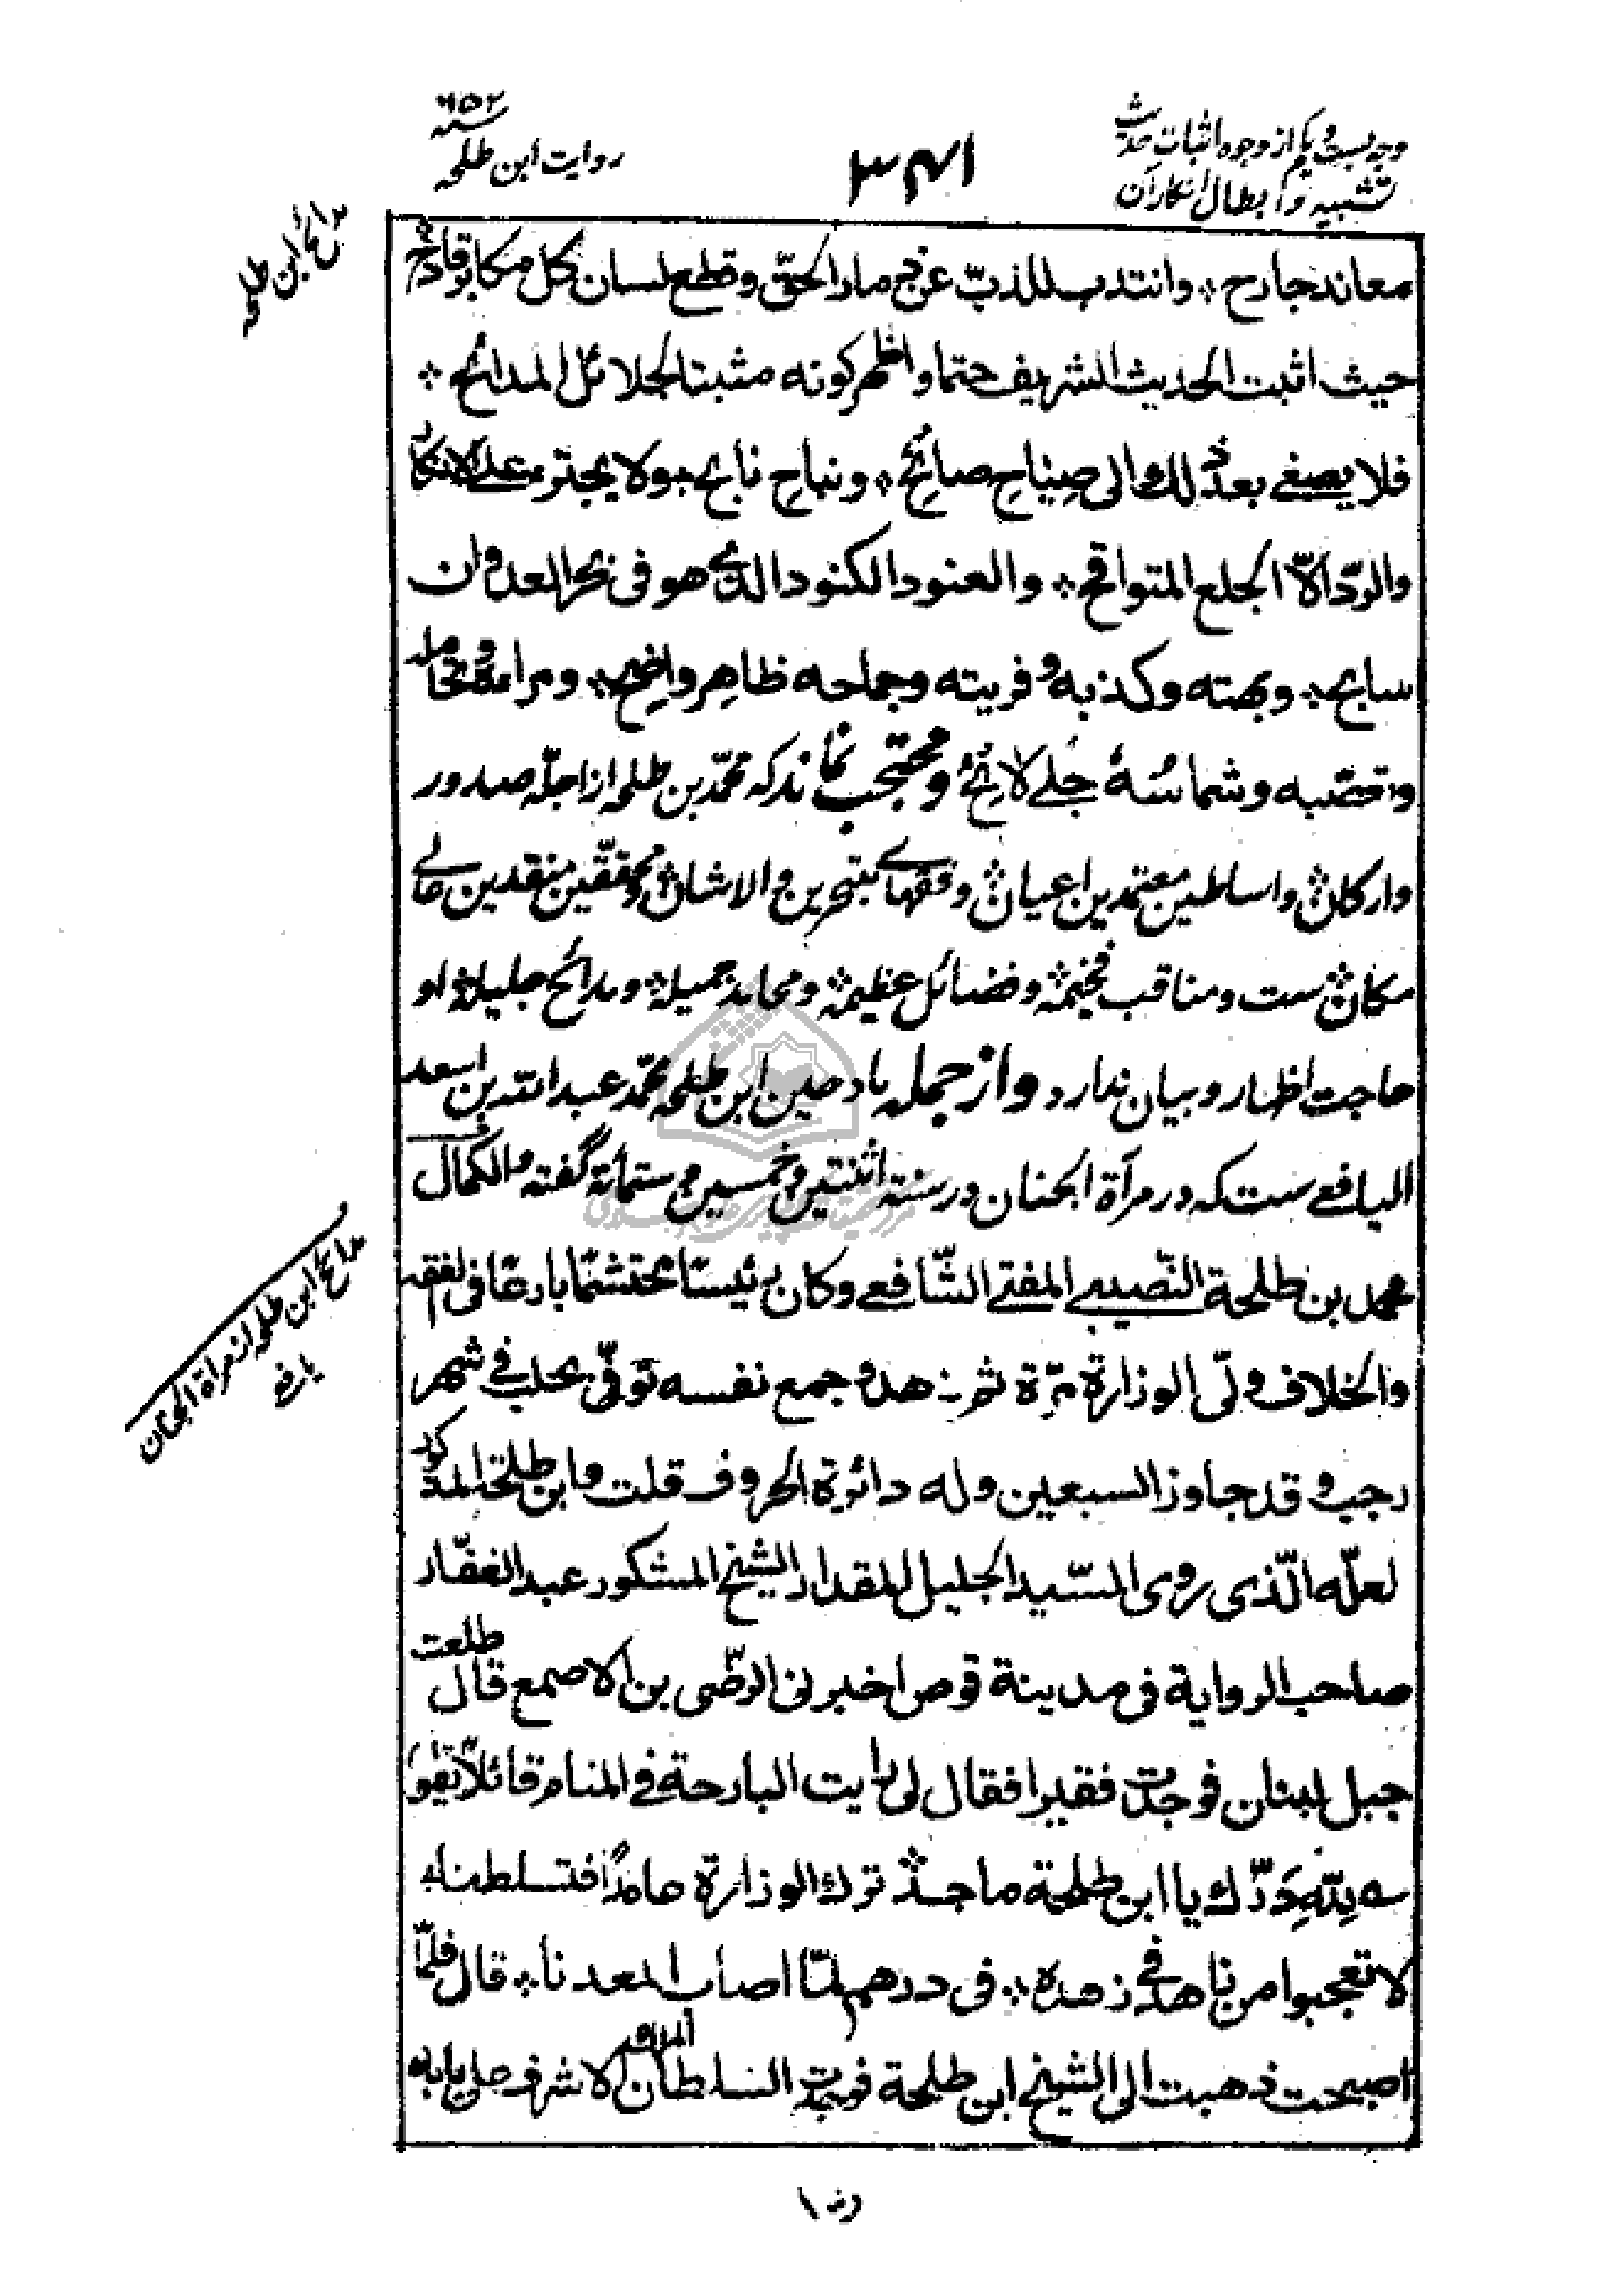 وجه بست و یکم از وجوه اثبات حدیث
تشبیه و ابطال انکار آن
۳۴۱
سنه ۶۵۲
روایت ابن طلحه
مدائح ابن طلحه
معاند جارح ؞ وانتدب للذبّ عن ذمار الحقّ وقطع لسان كل مكابر قادح
حيث اثبت الحديث الشريف حتما واظهر كونه مثبتا لجلائل المدائح ؞
فلا يصغى بعد ذلك الى صياح صائح ؞ ونباح نابح ؞ ولا يجترء على الانكار
والردّ الّا الجلع المتواقح ؞ والعنود الكنود الذى هو فى بحر العدوان
سابح ؞ وبهته وكذبه وفريته وجماحه ظاهر واضح ؞ ومراءه وتحامله
وتعصّبه وشماسُهُ جلے لائحٌ و محتجب نماند که محمّد بن طلحه از اجلّه صدور
وارکان ؞ واساطین معتمدین اعیان ؞ وفقهاے متبحرین والاشان ؞ ومحققین منقدین عالی
مکان ؞ ست ومناقب فخیمه ؞ وفضائل عظیمه ؞ ومحامد جمیله ؞ ومدائح جلیله ؞ او
حاجت اظهار و بیان ندارد واز جمله مادحین ابن طلحه محمّد عبد الله بن اسعد
الیافعے ست که در مرآة الجنان در سنة اثنتین وخمسین وستمائة گفته والكمال
محمد بن طلحة النّصيبى المفتى الشّافعى وكان رئيسًا محتشمًا بارعًا فى الفقه
والخلاف ولّى الوزارة مرّة ثم زهد وجمع نفسه توفّى بحلب فى شهر
رجب وقد جاوز السبعين وله دائرة الحروف قلت وابن طلحة المذكور
لعلّه الّذى روى السّيد الجليل المقدار الشيخ المشكور عبد الغفّار
صاحب الرواية فى مدينة قوص اخبرنى الرضى بن الاصمع قال طلعت
جبل لبنان فوجدت فقيرا فقال لى رايت البارحة فى المنام قائلًا يقول
سه لِلّهِ دَرّك يا ابن طلحة ماجد ؞ ترك الوزارة عامدًا فتسلطنا ؞
لا تعجبوا من زاهد فى زهده ؞ فى درهم لمّا اصاب المعدنا ؞ قال فلمّا
اصبحت ذهبت الى الشيخ ابن طلحة فوجدت السلطان الملك الاشرف على بابه
مدائح ابن طلحه از مرآة الجنان
یافعی